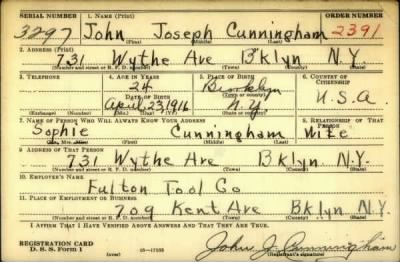 SERIAL NUMBER 1. NAME (Print) ORDER NUMBER
3297 John Joseph Cunningham 2391
(First) (Middle) (Last)
2. ADDRESS (Print)
731 Wythe Ave Bklyn N.Y.
(Number and street or R. F. D. number) (Town) (County) (State)
3. TELEPHONE 4. AGE IN YEARS 5. PLACE OF BIRTH 6. COUNTRY OF CITIZENSHIP
24 Brooklyn
DATE OF BIRTH (Town or county)
April 23 1916 N.Y. U.S.A.
(Exchange) (Number) (Mo.) (Day) (Yr.) (State or country)
7. NAME OF PERSON WHO WILL ALWAYS KNOW YOUR ADDRESS 8. RELATIONSHIP OF THAT PERSON
Sophie Cunningham Wife
(First) (Middle) (Last)
9. ADDRESS OF THAT PERSON
731 Wythe Ave Bklyn N.Y.
(Number and street or R. F. D. number) (Town) (County) (State)
10. EMPLOYER'S NAME
Fulton Tool Co
11. PLACE OF EMPLOYMENT OR BUSINESS
709 Kent Ave Bklyn N.Y.
(Number and street or R. F. D. number) (Town) (County) (State)
I AFFIRM THAT I HAVE VERIFIED ABOVE ANSWERS AND THAT THEY ARE TRUE.
REGISTRATION CARD
D. S. S. Form 1 (over) John J. Cunningham
(Registrant's signature)